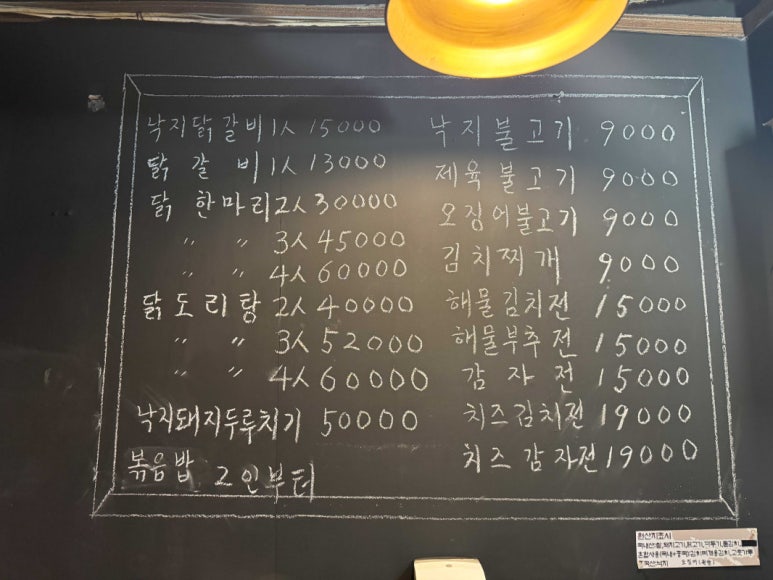 낙지닭갈비 1人 15000
닭 갈 비 1人 13000
닭 한마리 2人 30000
〃 〃 3人 45000
〃 〃 4人 60000
닭도리탕 2人 40000
〃 〃 3人 52000
〃 〃 4人 60000
낙지돼지두루치기 50000
볶음밥 2인부터
낙지불고기 9000
제육불고기 9000
오징어불고기 9000
김치찌개 9000
해물김치전 15000
해물부추전 15000
감자전 15000
치즈김치전 19000
치즈감자전 19000
원산지표시